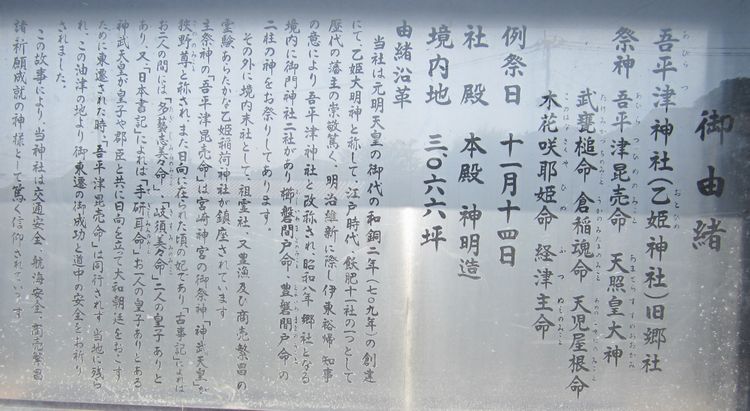 御由緒
吾平津神社(乙姫神社)旧郷社
祭神 吾平津昆売命 天照皇大神
武甕槌命 倉稲魂命 天児屋根命
木花咲耶姫命 経津主命
例祭日 十一月十四日
社殿 本殿 神明造
境内地 三〇六六坪
由緒沿革
当社は元明天皇の御代の和銅二年(七〇九年)の創建
にて、乙姫大明神と称して、江戸時代、飫肥十一社の一つとして
歴代の藩主の崇敬篤く、明治維新に際し伊東裕帰知事
の意により吾平津神社と改称され昭和八年郷社となる
境内に御門神社二社があり櫛磐間戸命、豊磐間戸命の
二柱の神をお祭りしてあります。
その外に境内末社として、祖霊社、又豊漁及び商売繁昌の
霊験あらたかな乙姫稲荷神社が鎮座されています
主祭神の「吾平津昆売命」は宮崎神宮の御祭神「神武天皇」が
狭野尊と称され、また日向に在られた頃の妃であり「古事記」によれば
お二人の間には「多藝志美々命」、「岐須美々命」二人の皇子ありと
あり、又「日本書記」によれば「手研耳命」お一人の皇子ありとある
神武天皇が皇子や郡臣と共に日向を立って大和朝廷をおこす
ために東遷された時、「吾平津昆売命」は同行されず当地に残ら
れ、この油津の地より御東遷の御成功と道中の安全をお祈り
されました。
この故事により、当神社は交通安全、航海安全、商売繁昌
諸祈願成就の神様として篤く信仰されています